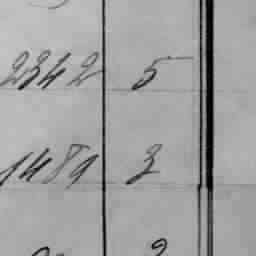 2342 5
1489 3